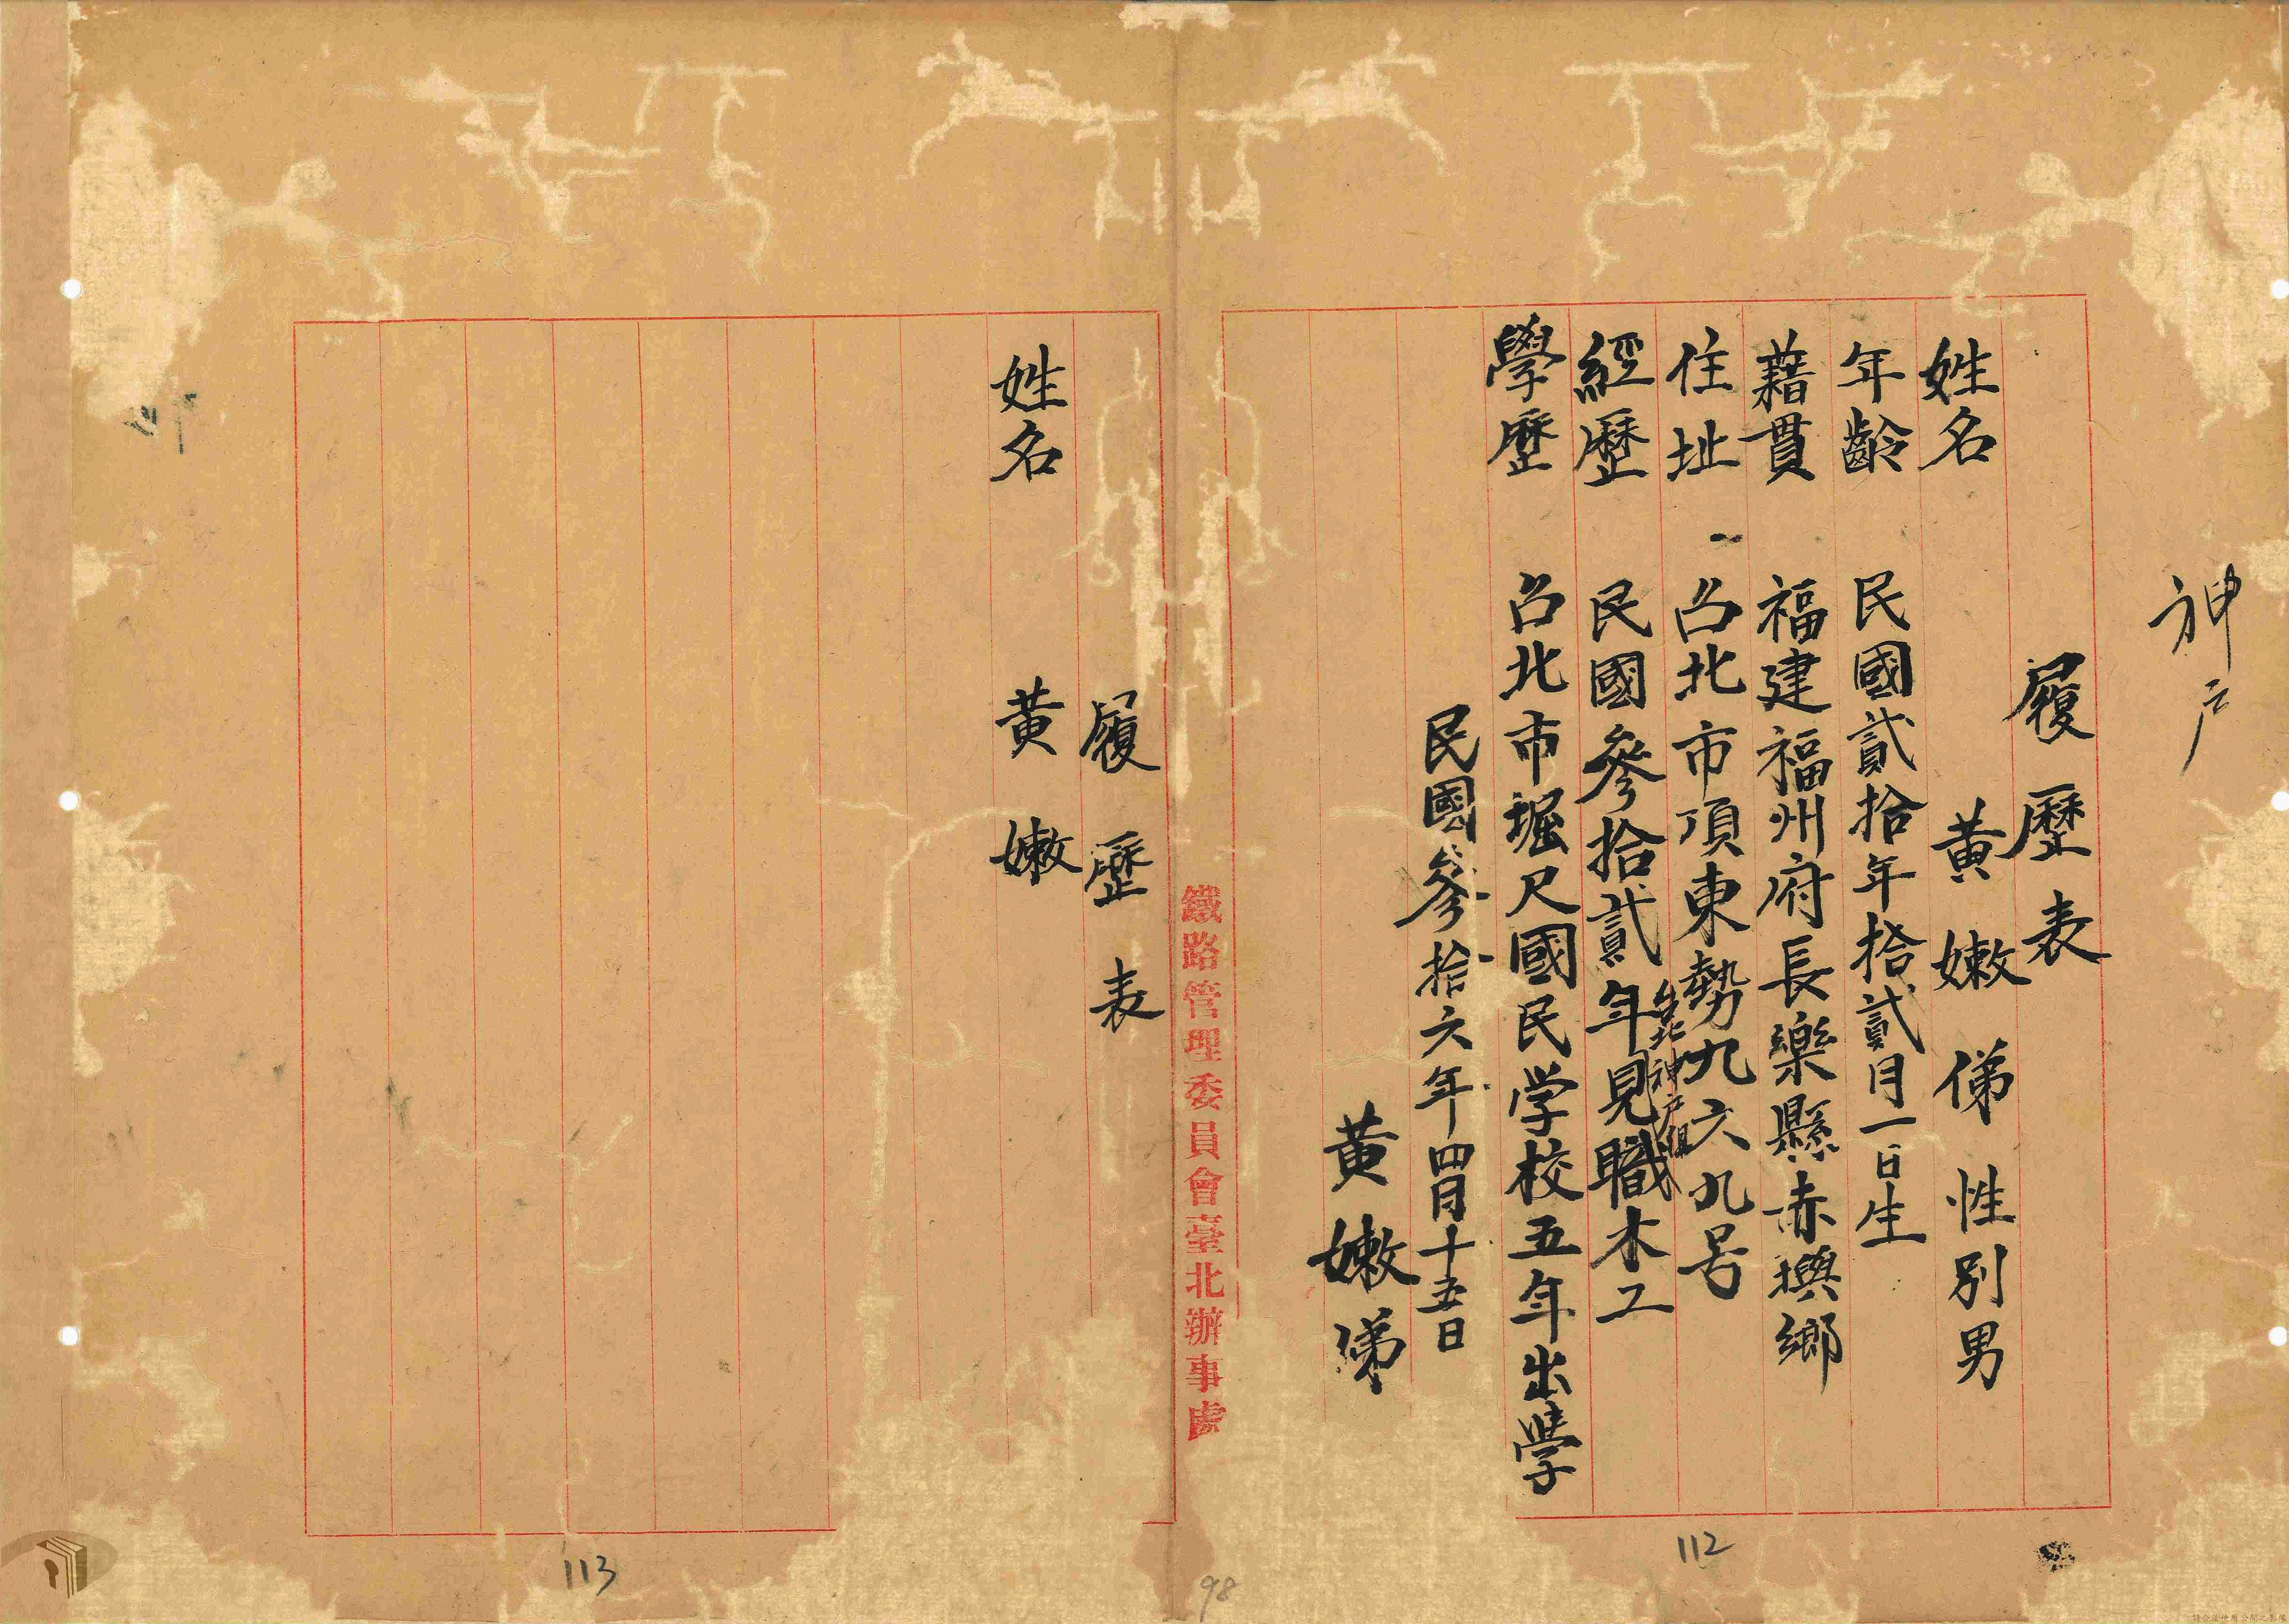 神戶
履歷表
姓名 黃嫩俤 性別男
年齡 民國貳拾年拾貳月一日生
藉貫 福建福州府長樂縣赤攑鄉
住址 台北市頂東勢九六九号
經歷 民國參拾貳年台北神戶組見職木工
學歷 台北市堀尺國民学校五年出學
民國參拾六年四月十五日
黃嫩俤
112
鐵路管理委員會臺北辦事處
98
履歷表
姓名 黃嫩
113